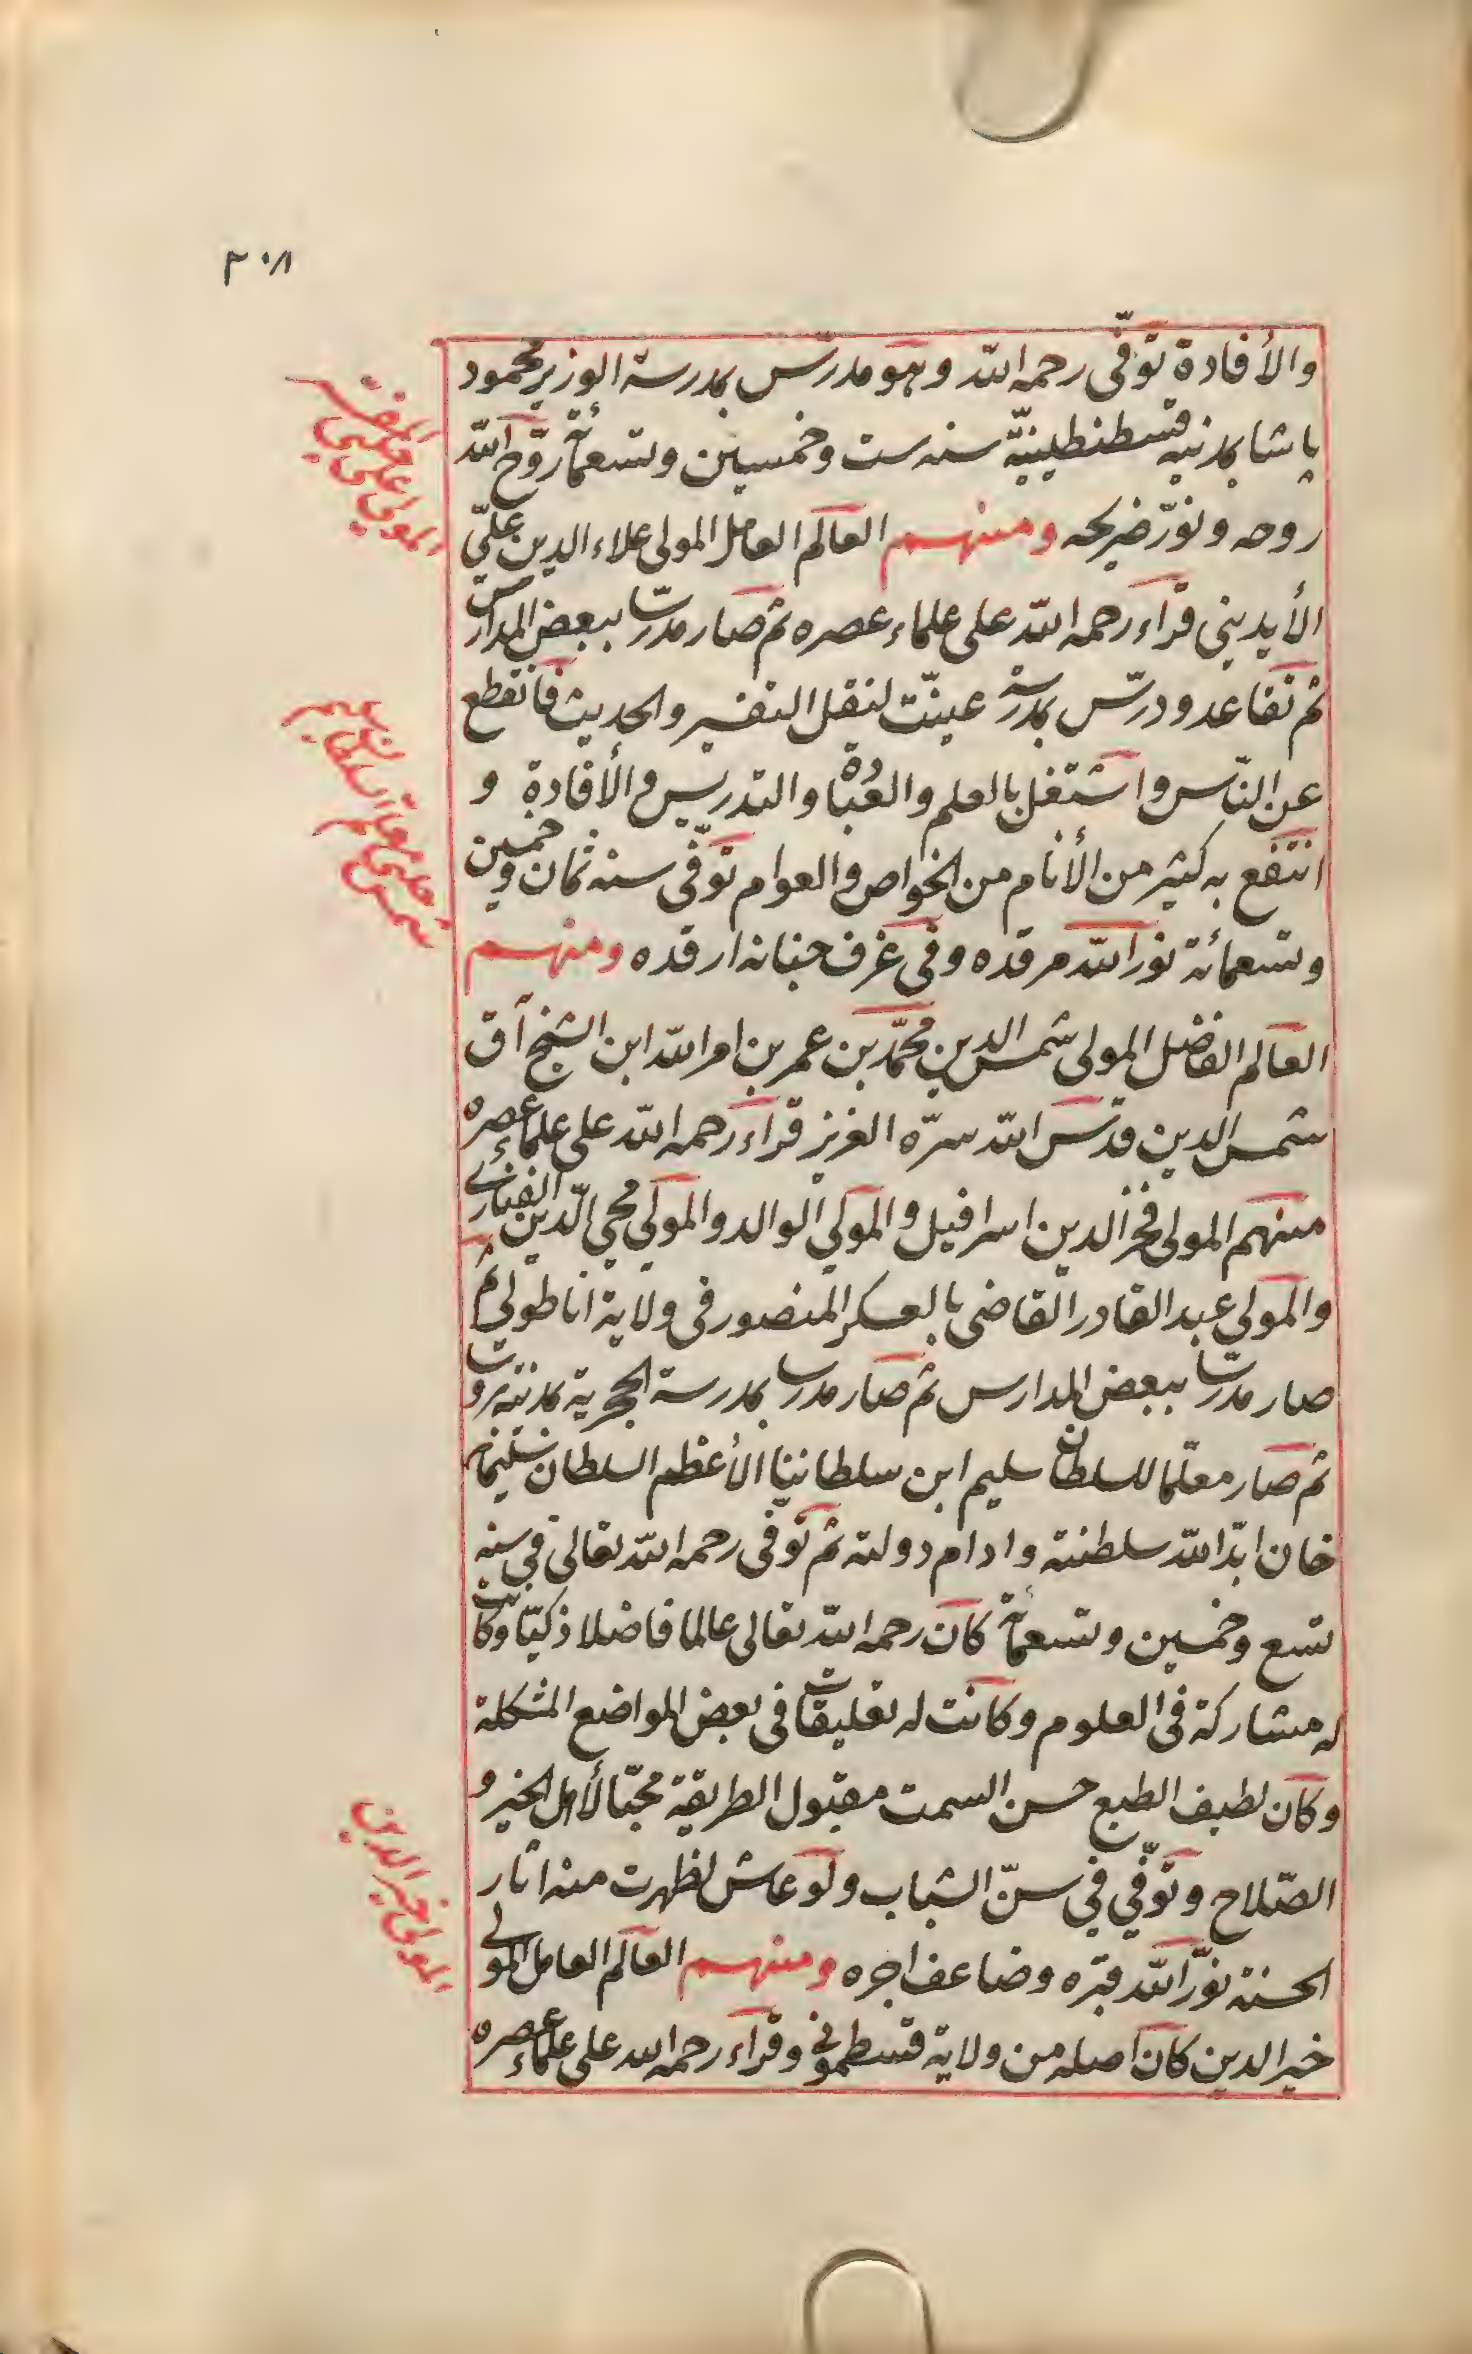 ٣٠٨
والأفادة توفّى رحمه اللّه وهو مدرّس بمدرسة الوزير محمود
پاشا بمدنيه قسطنطينيّة سنه ست وخمسين وتسعمأئة روّح اللّه
روحه ونوّر ضريحه ومنهم العالم العامل المولى علاء الدين علىّ
الأيدينى قراء رحمه اللّه على علماء عصره ثم صار مدرّسا ببعض المدارس
ثم تقاعد ودرّس بمدرسة عينّت لنقل التفسير والحديث فانقطع
عن النّاس واشتغل بالعلم والعبادة والتدريس والأفادة و
انتفع به كثير من الأنام من الخواص والعوام توفّى سنه ثمان وخمسين
وتسعمائة نور اللّه مرقده وفى غرف جنانه ارقده ومنهم
العالم الفاضل المولى شمس الدين محمّد بن عمر بن امر اللّه ابن الشيخ آق
شمس الدين قدّس اللّه سرّه العزيز قراء رحمه اللّه على علماء عصره
منهم المولى فخر الدين اسرافيل والمولي الوالد والمولي محي الّدين الفنارى
والمولى عبد القادر القاضى بالعسكر المنصور فى ولاية اناطولى ثم
صار مدرّسا ببعض المدارس ثم صار مدرسا بمدرسة الحجرية بمدنيه بروسا
ثم صار معلّما للسلطان سليم ابن سلطاننا الأعظم السلطان سليمان
خان ابّد اللّه سلطنته وادام دولته ثم توفى رحمه اللّه تعالى في سنه
تسع وخمسين وتسعمأئة كان رحمه اللّه تعالى عالما فاضلا ذكيّا وكانت
له مشاركة فى العلوم وكانت له تعليقات فى بعض المواضع المشكلة
وكان لطيف الطبع حسن السمت مقبول الطريقة محبّا لأهل الخير و
الصّلاح وتوفّي في سنّ الشباب ولو عاش لظهرت منه اثار
الحسنة نوّر اللّه قبره وضاعف اجره ومنهم العالم العامل المولى
خير الدين كان اصله من ولاية قسطمونى وقراء رحمه الله على علماء عصره
المولى خير الدين